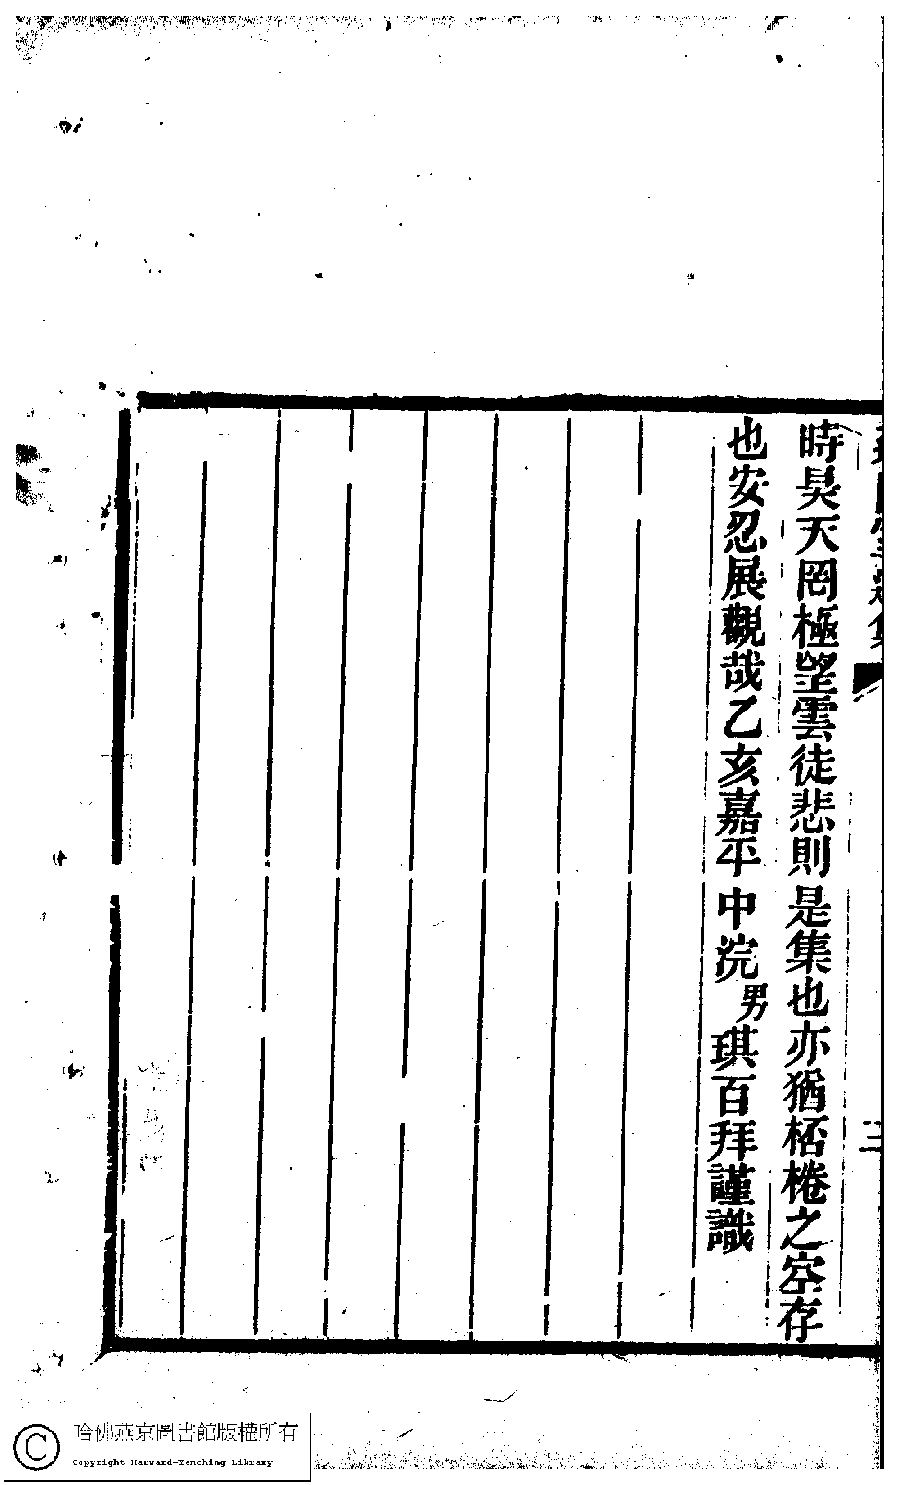 時昊天罔極望雲徒悲則是集也亦猶桮棬之空存
也安忍展觀哉乙亥嘉平中浣男琪百拜謹識
哈佛燕京圖書館版權所有
Copyright Harvard-Yenching Library